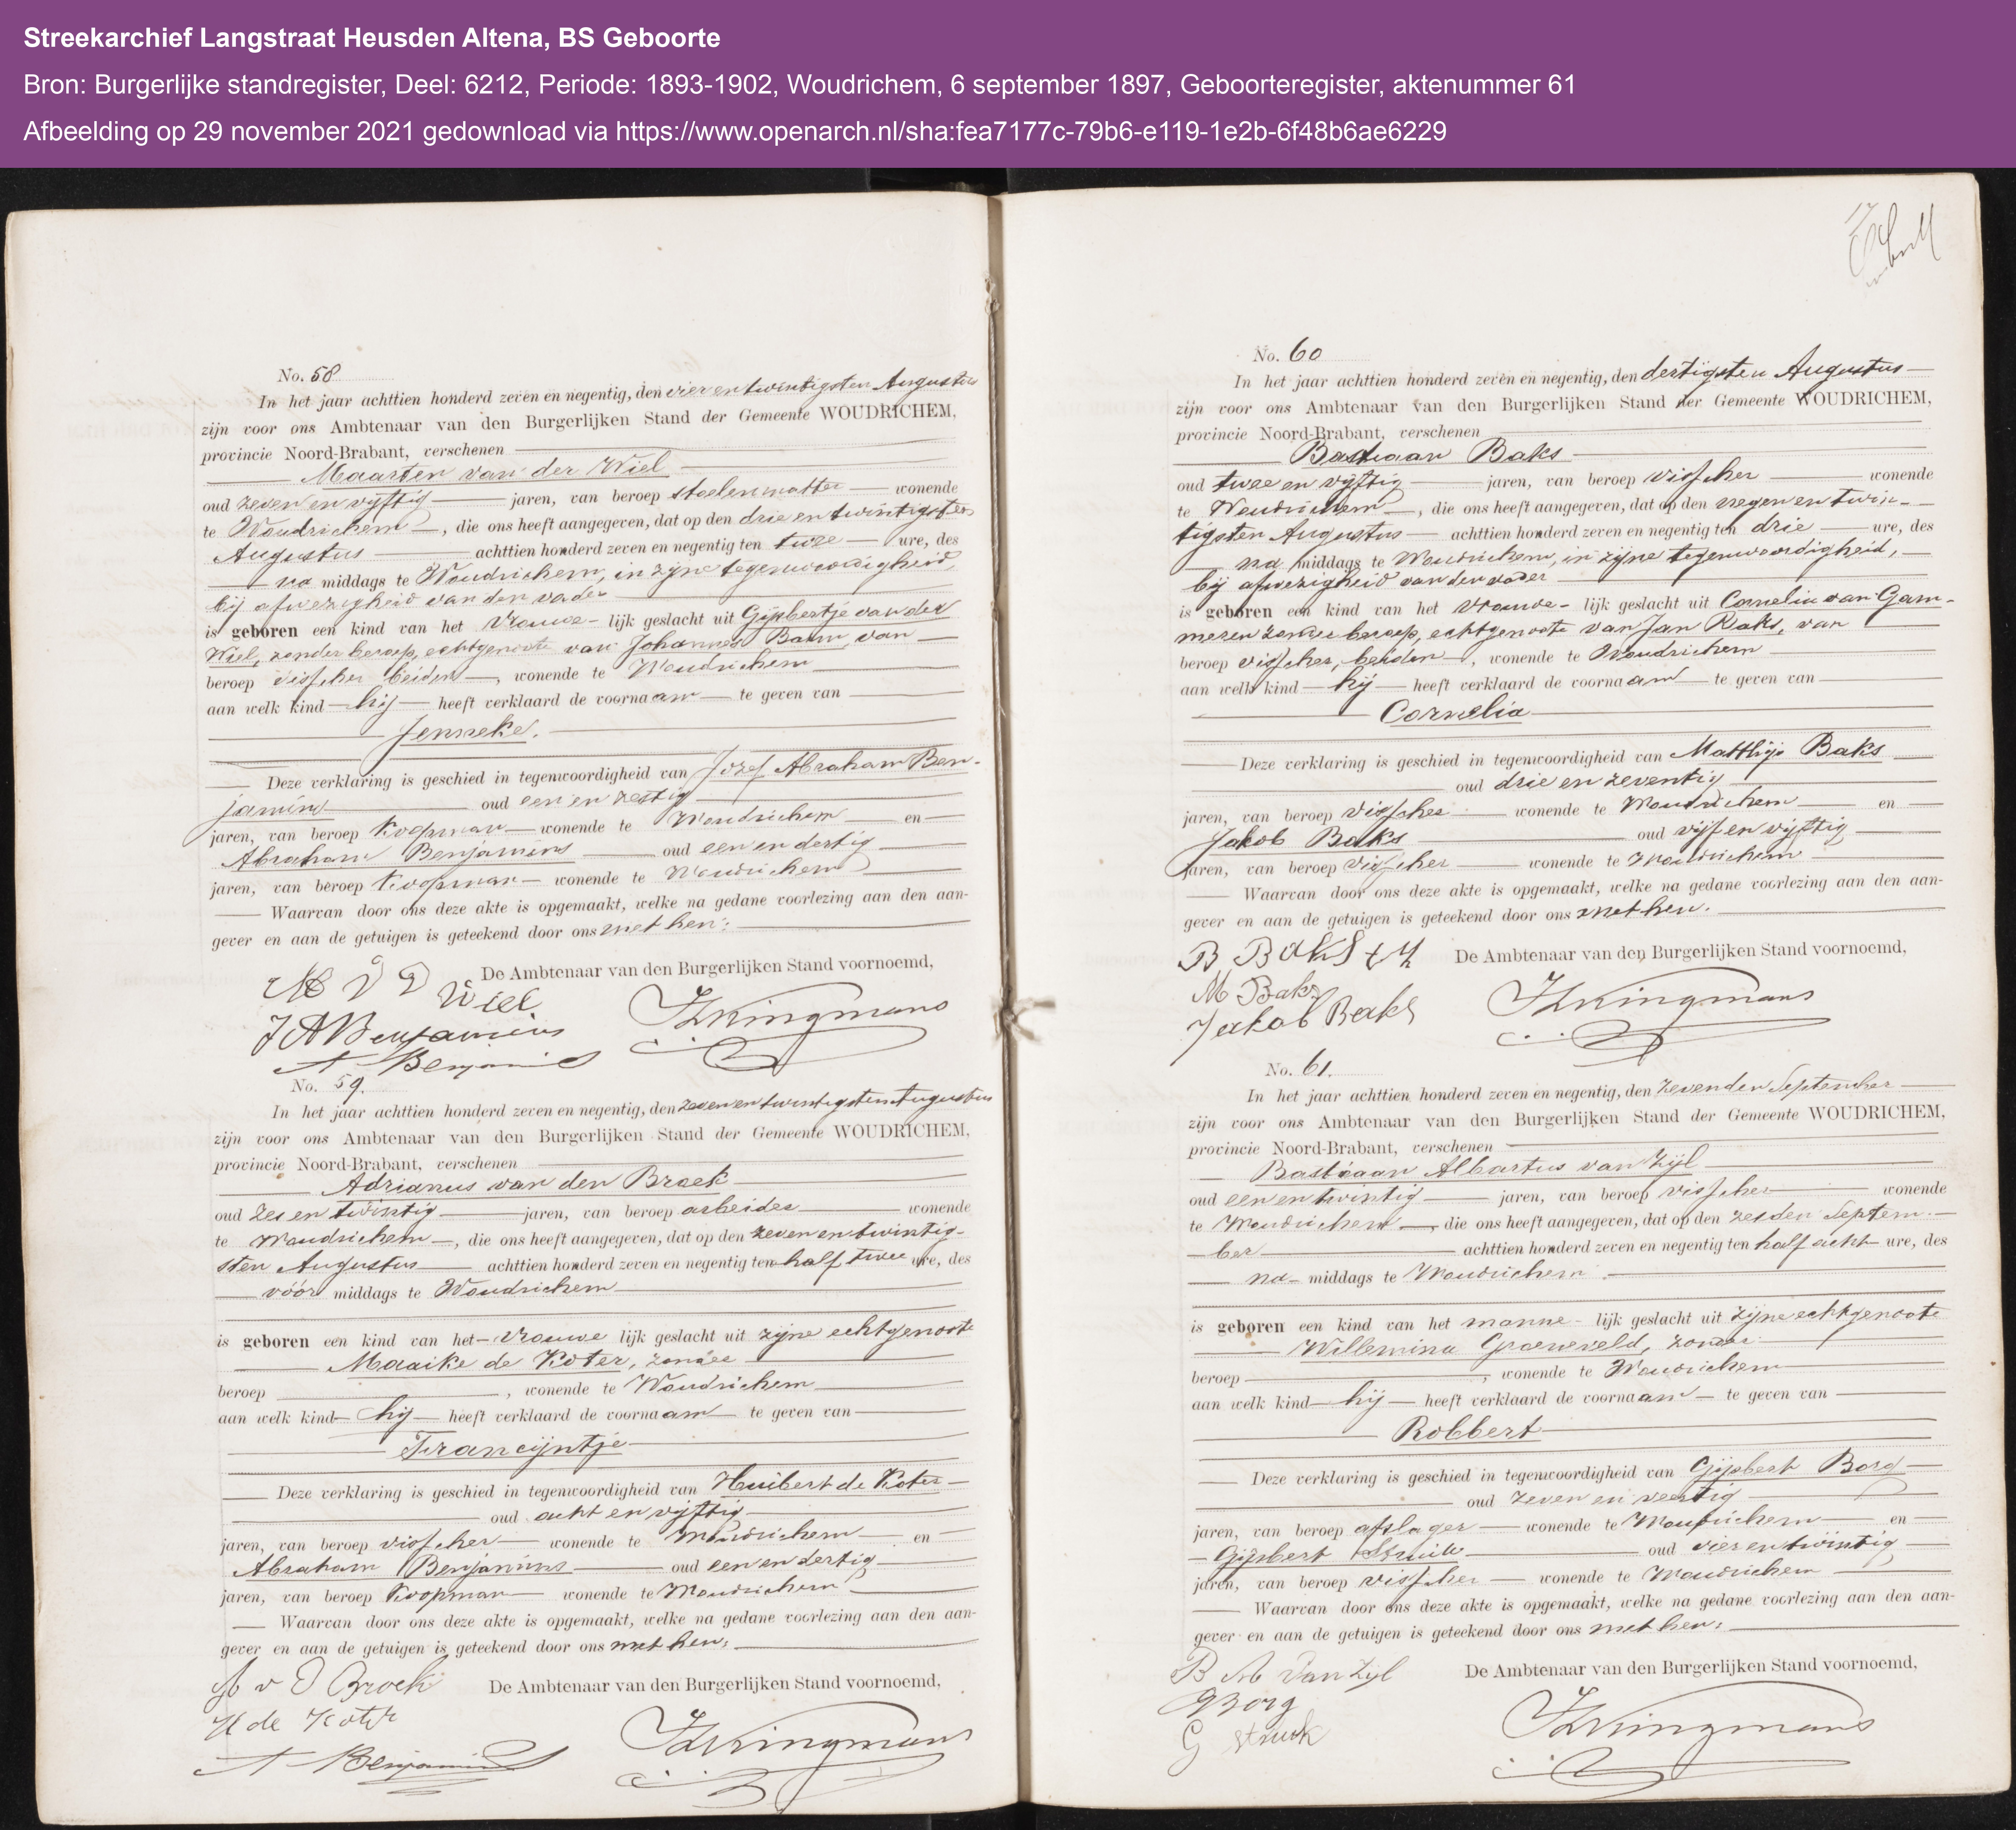 Streekarchief Langstraat Heusden Altena, BS Geboorte
Bron: Burgerlijke standregister, Deel: 6212, Periode: 1893-1902, Woudrichem, 6 september 1897, Geboorteregister, aktenummer 61
Afbeelding op 29 november 2021 gedownload via https://www.openarch.nl/sha:fea7177c-79b6-e119-1e2b-6f48b6ae6229
No. 58
In het jaar achttien honderd zeven en negentig, den vier en twintigsten Augustus
zijn voor ons Ambtenaar van den Burgerlijken Stand der Gemeente WOUDRICHEM,
provincie Noord-Brabant, verschenen
Maarten van der Wiel
oud zeven en vijftig jaren, van beroep stoelenmatter wonende
te Woudrichem, die ons heeft aangegeven, dat op den drie en twintigsten
Augustus achttien honderd zeven en negentig ten twee ure, des
na middags te Woudrichem, in zijne tegenwoordigheid,
bij afwezigheid van den vader
is geboren een kind van het vrouwe-lijk geslacht uit Gijsbertje van der
Wiel, zonder beroep, echtgenoote van Johannes Baum, van
beroep visscher beiden, wonende te Woudrichem
aan welk kind hij heeft verklaard de voornaam te geven van
Jenneke.
Deze verklaring is geschied in tegenwoordigheid van Jozef Abraham Ben-
jamins oud een en zestig
jaren, van beroep Koopman wonende te Woudrichem en
Abraham Benjamins oud een en dertig
jaren, van beroep Koopman wonende te Woudrichem
Waarvan door ons deze akte is opgemaakt, welke na gedane voorlezing aan den aan-
gever en aan de getuigen is geteekend door ons met hen:
De Ambtenaar van den Burgerlijken Stand voornoemd,
M V D Wiel
J A Benjamins
A Benjamins
No. 59.
In het jaar achttien honderd zeven en negentig, den zeven en twintigsten Augustus
zijn voor ons Ambtenaar van den Burgerlijken Stand der Gemeente WOUDRICHEM,
provincie Noord-Brabant, verschenen
Adrianus van den Broek
oud zes en twintig jaren, van beroep arbeider wonende
te Woudrichem, die ons heeft aangegeven, dat op den zeven en twintig-
sten Augustus achttien honderd zeven en negentig ten half twee ure, des
vóór middags te Woudrichem
is geboren een kind van het vrouwe lijk geslacht uit zijne echtgenoote
Maaike de Koter, zonder
beroep, wonende te Woudrichem
aan welk kind hij heeft verklaard de voornaam te geven van
Francijntje
Deze verklaring is geschied in tegenwoordigheid van Huibert de Koter
oud acht en vijftig
jaren, van beroep visscher wonende te Woudrichem en
Abraham Benjamins oud een en dertig
jaren, van beroep Koopman wonende te Woudrichem
Waarvan door ons deze akte is opgemaakt, welke na gedane voorlezing aan den aan-
gever en aan de getuigen is geteekend door ons met hen:
De Ambtenaar van den Burgerlijken Stand voornoemd,
A v D Broek
H de Koter
A Benjamins
No. 60
In het jaar achttien honderd zeven en negentig, den dertigsten Augustus
zijn voor ons Ambtenaar van den Burgerlijken Stand der Gemeente WOUDRICHEM,
provincie Noord-Brabant, verschenen
Bastiaan Baks
oud twee en vijftig jaren, van beroep visscher wonende
te Woudrichem, die ons heeft aangegeven, dat op den negen en twin-
tigsten Augustus achttien honderd zeven en negentig ten drie ure, des
na middags te Woudrichem, in zijne tegenwoordigheid,
bij afwezigheid van den vader
is geboren een kind van het vrouwe-lijk geslacht uit Cornelia van Gam-
meren zonder beroep, echtgenoote van Jan Baks, van
beroep visscher, beiden, wonende te Woudrichem
aan welk kind hij heeft verklaard de voornaam te geven van
Cornelia
Deze verklaring is geschied in tegenwoordigheid van Matthijs Baks
oud drie en zeventig
jaren, van beroep visscher wonende te Woudrichem en
Jakob Baks oud vijf en vijftig
jaren, van beroep visscher wonende te Woudrichem
Waarvan door ons deze akte is opgemaakt, welke na gedane voorlezing aan den aan-
gever en aan de getuigen is geteekend door ons met hen.
De Ambtenaar van den Burgerlijken Stand voornoemd,
B Baks
M Baks
Jakob Baks
No. 61.
In het jaar achttien honderd zeven en negentig, den zevenden September
zijn voor ons Ambtenaar van den Burgerlijken Stand der Gemeente WOUDRICHEM,
provincie Noord-Brabant, verschenen
Bastiaan Albartus van Zijl
oud een en twintig jaren, van beroep visscher wonende
te Woudrichem, die ons heeft aangegeven, dat op den zesden Septem-
ber achttien honderd zeven en negentig ten half acht ure, des
na-middags te Woudrichem
is geboren een kind van het manne-lijk geslacht uit zijne echtgenoote
Willemina Groeneveld, zonder
beroep, wonende te Woudrichem
aan welk kind hij heeft verklaard de voornaam te geven van
Robbert
Deze verklaring is geschied in tegenwoordigheid van Gijsbert Borg
oud zeven en veertig
jaren, van beroep afslager wonende te Woudrichem en
Gijsbert Struik oud vier en twintig
jaren, van beroep visscher wonende te Woudrichem
Waarvan door ons deze akte is opgemaakt, welke na gedane voorlezing aan den aan-
gever en aan de getuigen is geteekend door ons met hen:
De Ambtenaar van den Burgerlijken Stand voornoemd,
B A van Zijl
G Borg
G Struik